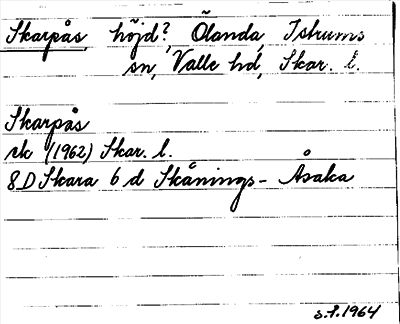 Skarpås, höjd?, Ölanda, Istrums
sn, Valle hd, Skar. l.
Skarpås
ek (1962) Skar. l.
8D Skara 6 d Skånings-Åsaka
s.f. 1964